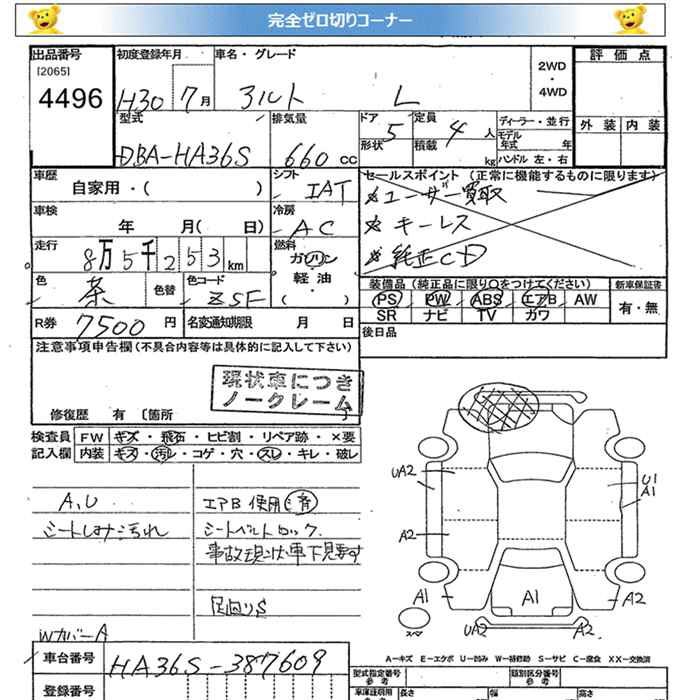 完全ゼロ切りコーナー
出品番号 初度登録年月 車名・グレード 2WD ・ 4WD 評価点
[2065]
4496 H30 7月 アルト L
型式 排気量 ドア 5 定員 4人 ディーラー・並行 外装 内装
DBA-HA36S 660cc 形状 積載 kg モデル年式 年
ハンドル 左・右
車歴 シフト セールスポイント (正常に機能するものに限ります)
自家用・( ) IAT ユーザー買取
車検 冷房 キーレス
年 月( 日) AC 純正CD
走行 燃料
8万5千253km ガソリン
軽油
・( )
色 茶 色替 色コード ZSF
装備品 (純正品に限り○をつけてください) 新車保証書
PS PW ABS エアB AW 有・無
SR ナビ TV カワ
R券 7500円 名変通知期限 月 日 後日品
注意事項申告欄 (不具合内容等は具体的に記入して下さい)
現状車につき
ノークレーム
修復歴 有 〔箇所
検査員 FW キズ・飛石・ヒビ割・リペア跡・×要
記入欄 内装 キズ・汚レ・コゲ・穴・スレ・キレ・破レ
A、U エアB使用済
シートしみ汚れ シートベルトロック
事故現状車下見要す
足回りS
WカバーA
UA2 U1
A1
A2
A1 A1 A2
スペア UA2 A2
車台番号 HA36S-387609
A-キズ E-エクボ U-凹み W-補修跡 S-サビ C-腐食 XX-交換済
登録番号 型式指定番号 類別区分番号
参考 参考
長さ 幅 高さ